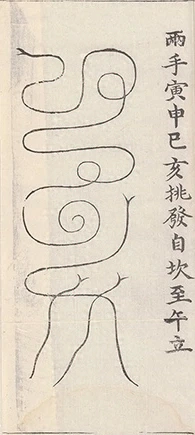 兩手寅申巳亥挑發自坎至午立